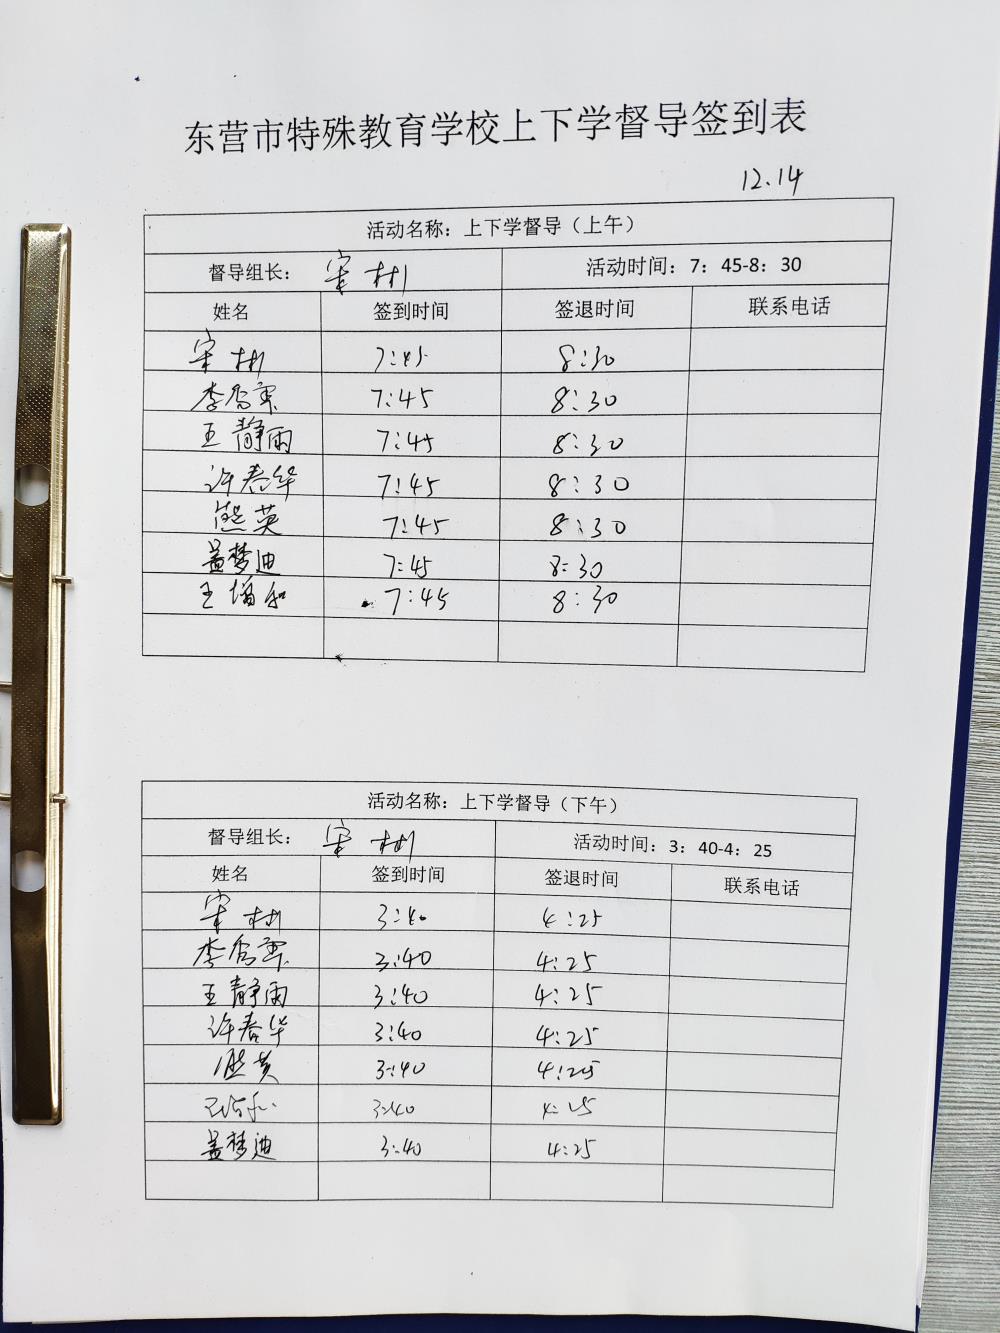 东营市特殊教育学校上下学督导签到表
12.14
活动名称：上下学督导（上午）
督导组长：宋彬 活动时间：7：45-8：30
姓名 签到时间 签退时间 联系电话
宋彬 7:45 8:30
李 7:45 8:30
王静雨 7:45 8:30
许春华 7:45 8:30
熊英 7:45 8:30
盖梦迪 7:45 8:30
王 7:45 8:30
活动名称：上下学督导（下午）
督导组长：宋彬 活动时间：3：40-4：25
姓名 签到时间 签退时间 联系电话
宋彬 3:40 4:25
李 3:40 4:25
王静雨 3:40 4:25
许春华 3:40 4:25
熊英 3:40 4:25
王 3:40 4:25
盖梦迪 3:40 4:25